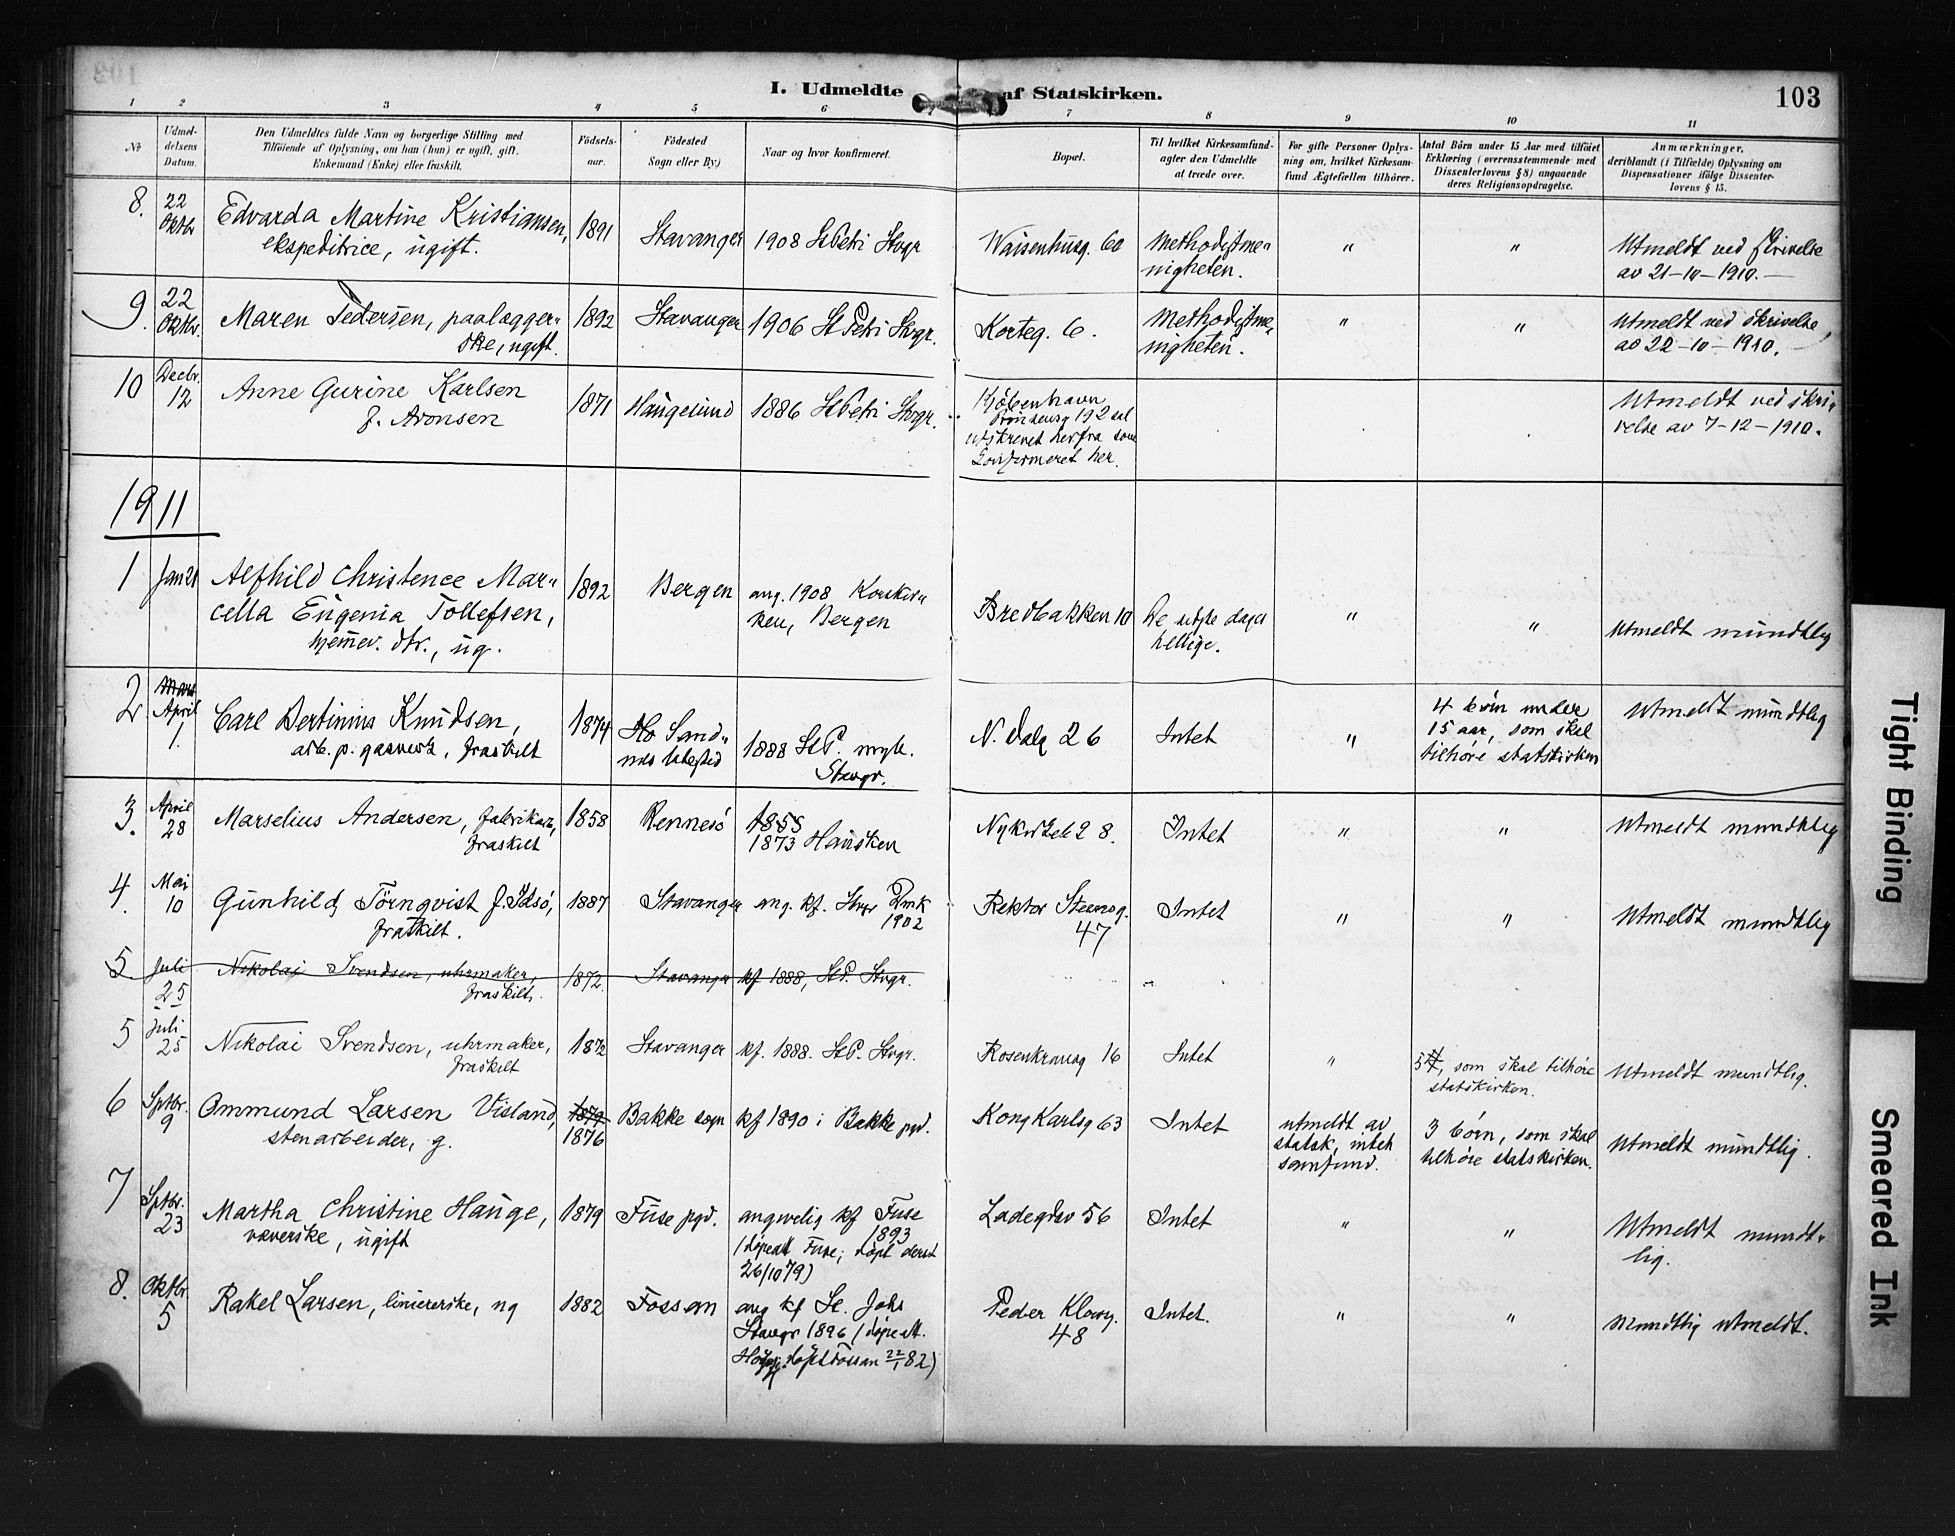 I. Udmeldte af Statskirken.
103
1 2 3 4 5 6 7 8 9 10 11
№
Udmel-
delsens
Datum.
Den Udmeldtes fulde Navn og borgerlige Stilling med
Tilføiende af Oplysning, om han (hun) er ugift, gift,
Enkemand (Enke) eller fraskilt.
Födsels-
aar.
Födested
Sogn eller By)
Naar og hvor konfirmeret.
Bopæl.
Til hvilket Kirkesamfund-
agter den Udmeldte
at træde over.
For gifte Personer Oplys-
ning om, hvilket Kirkesam-
fund Ægtefællen tilhörer.
Antal Börn under 15 Aar med tilföiet
Erklæring (overensstemmende med
Dissenterlovens § 8) angaaende
deres Religionsopdragelse.
Anmærkninger,
deriblandt (i Tilfælde) Oplysning om
Dispensationer ifölge Dissenter-
lovens § 15.
8.
22
Oktbr
Edvarda Martine Kristiansen,
ekspeditrice, ugift.
1891
Stavanger
1908 St Petri Stvgr
Waisenhusg. 60
Methodistme„
nigheten.
„
„
Utmeldt ved skrivelse
av 21-10-1910.—
9.
22
Oktbr.
Maren Pedersen, paalægger„
ske, ugift.
1892
Stavanger
1906 St Petri Stvgr.
Korteg. 6.
Methodistme„
nigheten.
„
„
Utmeldt ved skrivelse
av 22-10-1910.
10
Decbr.
12
Anne Gurine Karlsen
f. Aronsen
1871
Haugesund
1886 St Petri Stvgr.
Kjöbenhavn
192
utskrevet herfra som
konfirmeret her.
Utmeldt ved skri„
velse av 7-12-1910.
1911
1
Jan 21
Alfhild Christence Mar„
cella Eugenia Tollefsen,
hjemmev. dtr., ug.
1892
Bergen
ang. 1908 Korskir„
ken, Bergen
Bredbakken 10
De sidste dages
hellige.
„
„
Utmeldt mundtlig
2
Mars
April
1.
Carl Bertinius Knudsen,
arb. p. gasverk, fraskilt
1874
Sand„
nes ladested
1888 St P. mgh.
Stavgr.
N. Dalg 26
Intet
„
4 børn under
15 aar, som skal
tilhøre statskirken
Utmeldt mundtlig
3.
April
28
Marselius Andersen, fabrikarb,
fraskilt
1858
Rennesö
1858
1873 Hausken
8.
Intet
„
„
Utmeldt mundtlig
4.
Mai
10
Gunhild Törnqvist f. Idsö,
fraskilt.
1887
Stavanger
ang. kf. Stvgr Dmk
1902
Rektor Steensg.
47
Intet
„
„
Utmeldt mundtlig
5
Juli
25
Nikolai Svendsen, uhrmaker,
fraskilt.
1872.
Stavanger
kf 1888, St P. Stvgr.
5
Juli
25
Nikolai Svendsen, uhrmaker,
fraskilt
1872
Stavanger
kf. 1888. St P. Stvgr.
Rosenkransg 16
Intet
„
5, som skal tilhöre
statskirken.
Utmeldt mundtlig.
6
Sptbr.
9
Ommund Larsen Visland,
stenarbeider, g.
1879
1876
Bakke sogn
kf 1890 i Bakke pgd.
Kong Karlsg 63
Intet
utmeldt av
statsk, intet
samfund.
3 börn, som skal
tilhöre statskirken.
Utmeldt mundtlig.
7
Sptbr.
23
Martha Christine Hauge,
væverske, ugift
1879
Fuse pgd.
angivelig kf Fuse
1893
(døpeatt Fuse; döpt derst
26/10 79)
Ladegdsv 56
Intet
„
„
Utmeldt mundt„
lig.
8.
Oktbr.
5
Rakel Larsen, liniererske, ug
1882
Fossan
ang kf St. Johs
Stavgr 1896 (døpeatt.
döpt Fossan 22/1 82)
Peder Klowg.
48
Intet.
„
„
Mundtlig utmeldt.
Tight Binding
Smeared Ink